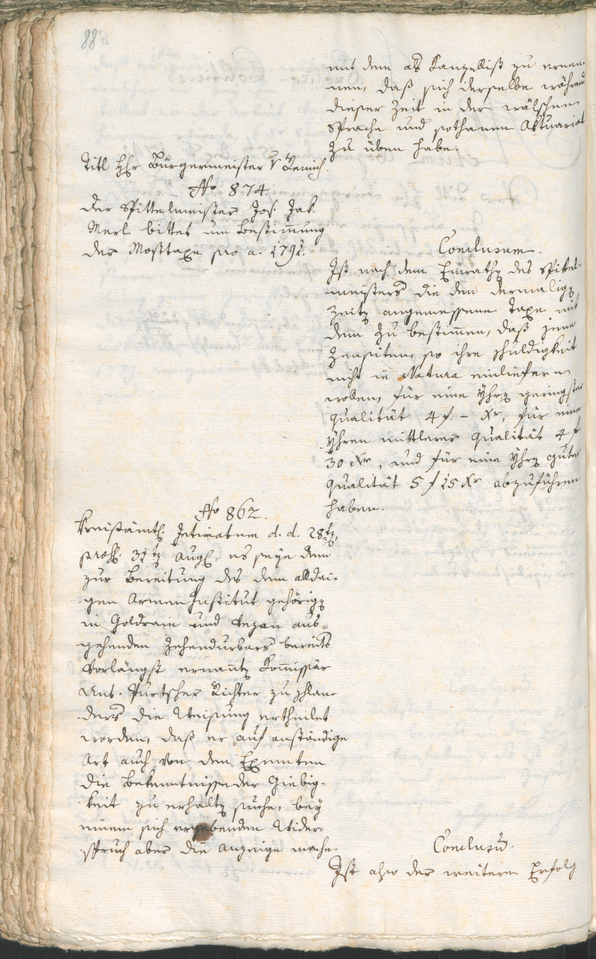 88
mit dem als Kanzellist zu ernen-
nen, daß sich derselbe während
dieser Zeit in der wälschen
Sprache und sothanen Aktuariat
zu üben habe.
Titl Hr Bürgermeister v
No. 874.
Der Spittelmeister Jos. Jak.
Merl bittet um Bestimmung
der Mosttaxe pro a. 1791.
Conclusum.
Ist nach dem Einrathen des Spittel-
meisters die den dermaligen
Zeiten angemessene Taxe mit
dem zu bestimmen, daß jene
Zensiten, so ihre Schuldigkeit
nicht in Natura einliefern
wollen, für eine Yhren geringster
Qualität 4 f – Xr, für eine
Yhren mittlerer Qualität 4 f
30 Xr, und für eine Yhren guter
Qualität 5 f 15 Xr abzuführen
haben.
No 862.
Kreisämtl. Intimatum d. d. 28ten
praes. 31ten Aug., es seye dem
zur Bereitung des dem alldai-
gen Armeninstitut gehörigen
in Goldrain und Vezan aus-
gehenden Zehendurbars bereits
vorlängst ernannten Kommissär
Ant. Purtscher Richter zu Schlan-
ders die Weisung ertheilet
worden, daß er auf anständige
Art auch von den Exemten
die Bekenntnisse der Giebig-
keit zu erhalten suche, bey
einem sich ergebenden Wider-
spruch aber die Anzeige mache.
Conclusum.
Ist also der weitere Erfolg